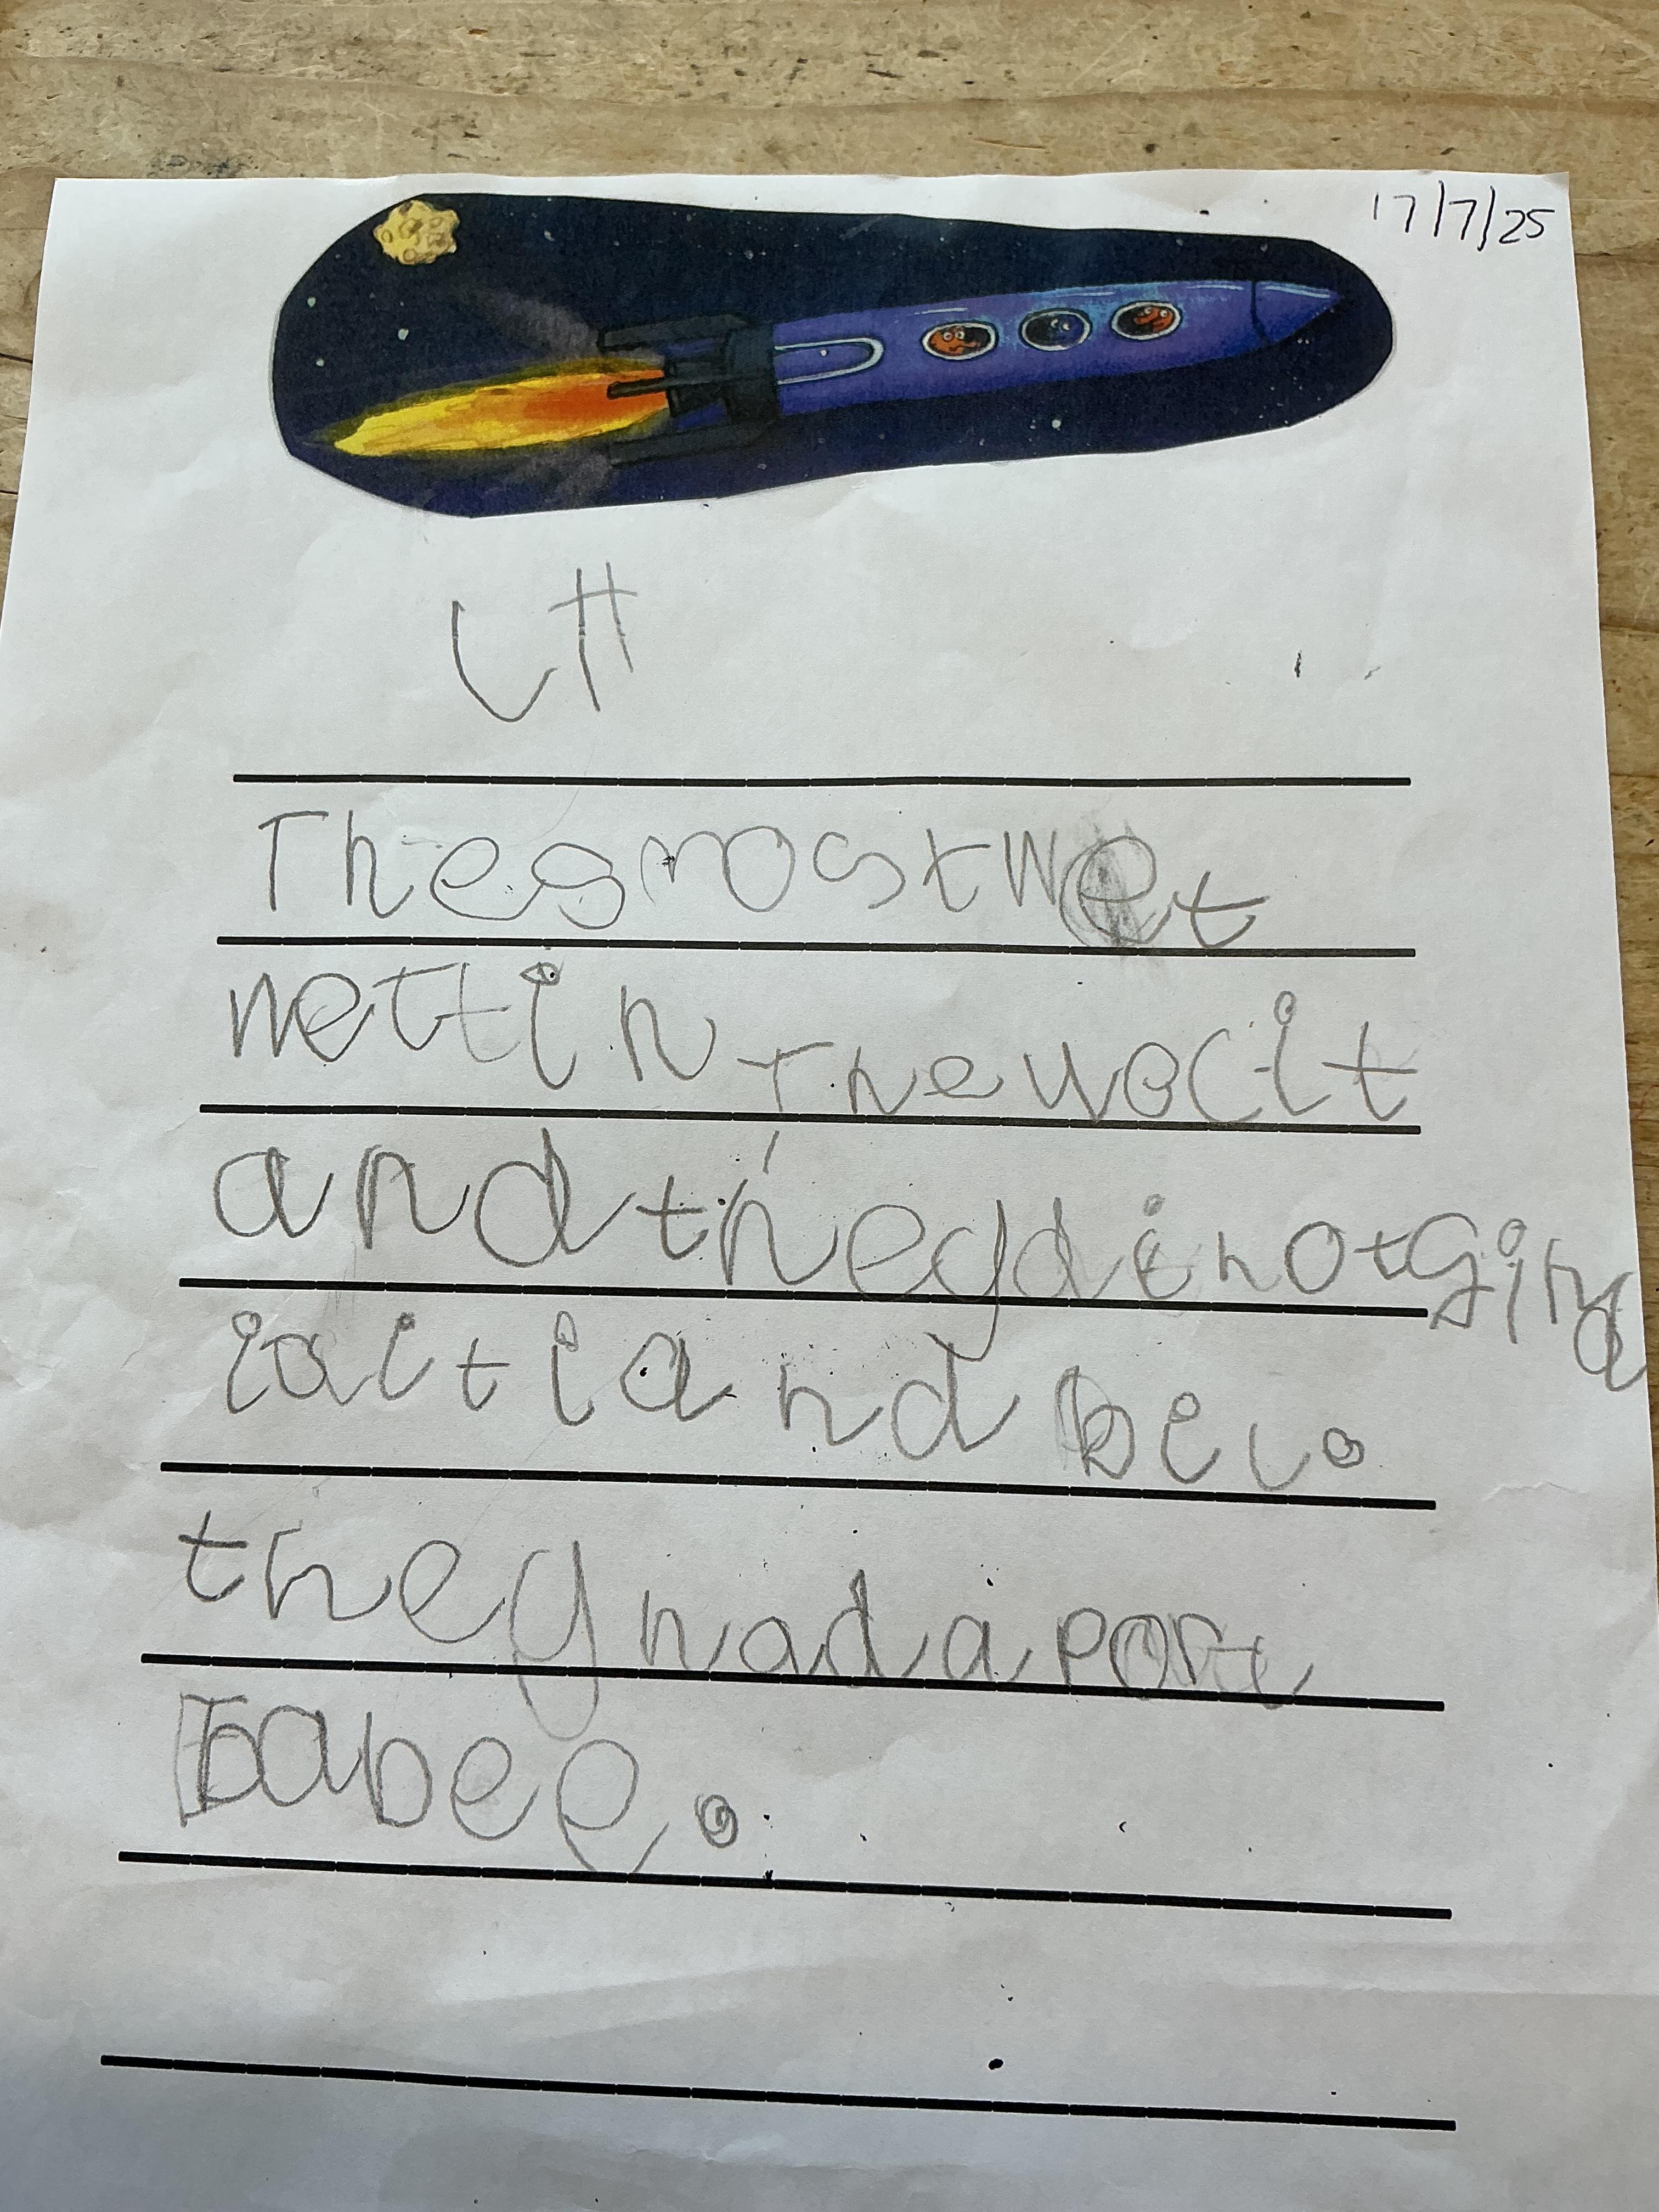 17/7/25
LH
The smost wet
wettin the rocit
and they di not gind
iolt i and bil.
they had a port
Babee.